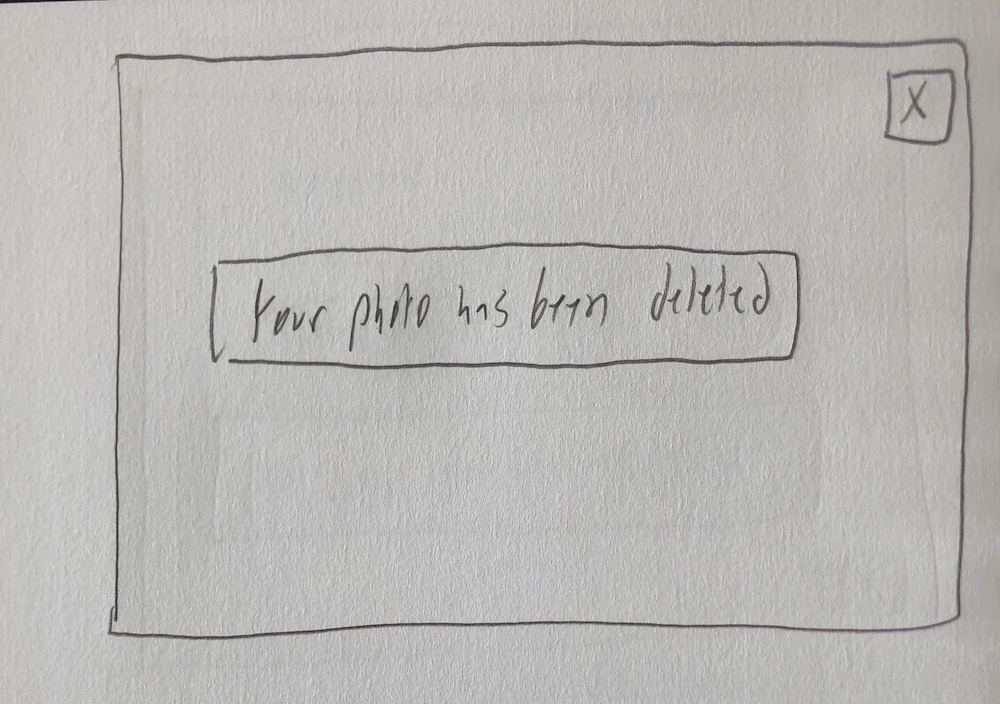 X
Your photo has been deleted